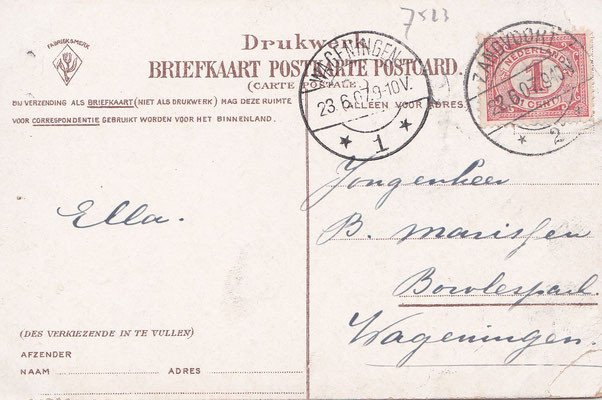 7523
FABRIEKSMERK
Drukwerk
BRIEFKAART POSTKARTE POSTCARD.
(CARTE POSTALE)
BIJ VERZENDING ALS BRIEFKAART (NIET ALS DRUKWERK) MAG DEZE RUIMTE
VOOR CORRESPONDENTIE GEBRUIKT WORDEN VOOR HET BINNENLAND.
ALLEEN VOOR ADRES
WAGENINGEN
23.6.07.9-10V.
1
ZANDVOORT
23.6.07
2
NEDERLAND
1
CENT
Ella.
Jongenheer
B. Marissen
Bowlespark.
Wageningen.
(DES VERKIEZENDE IN TE VULLEN)
AFZENDER
NAAM ADRES